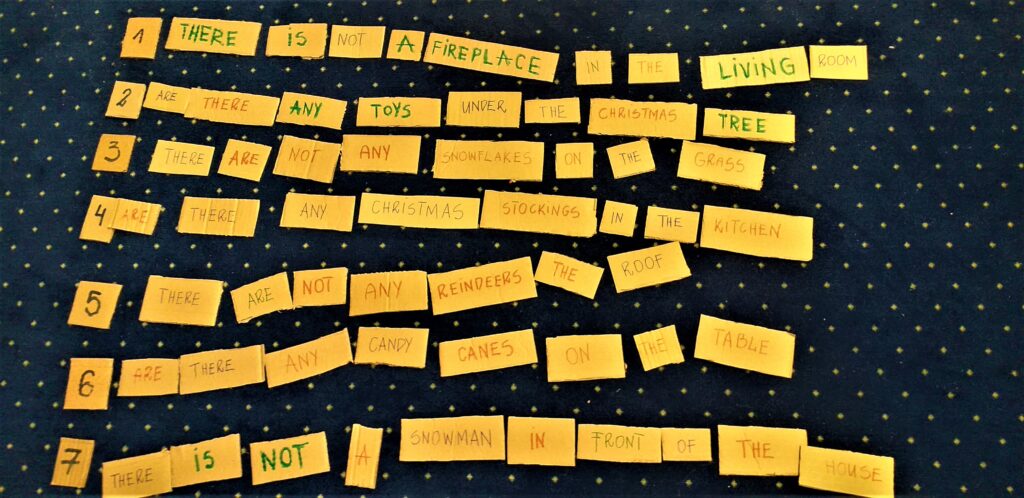 1 THERE IS NOT A FIREPLACE IN THE LIVING ROOM
2 ARE THERE ANY TOYS UNDER THE CHRISTMAS TREE
3 THERE ARE NOT ANY SNOWFLAKES ON THE GRASS
4 ARE THERE ANY CHRISTMAS STOCKINGS IN THE KITCHEN
5 THERE ARE NOT ANY REINDEERS THE ROOF
6 ARE THERE ANY CANDY CANES ON THE TABLE
7 THERE IS NOT A SNOWMAN IN FRONT OF THE HOUSE